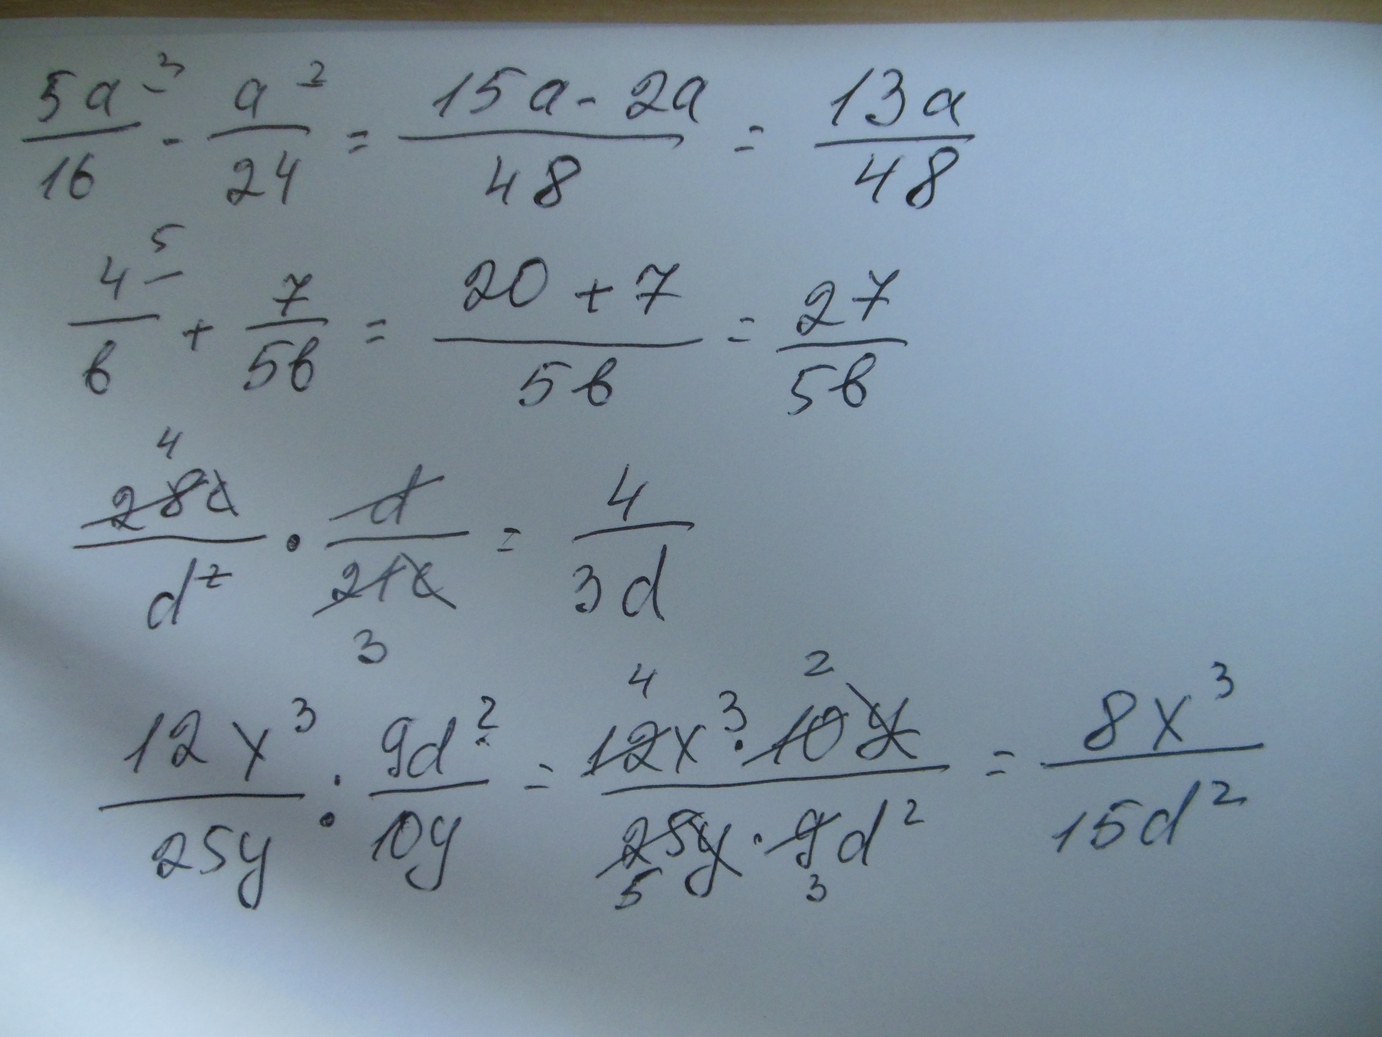 5a³/16 - a²/24 = (15a - 2a)/48 = 13a/48
4⁵/b + 7/5b = (20 + 7)/5b = 27/5b
⁴28c/d² · d/21c₃ = 4/3d
12x³/25y : 9d²/10y = (⁴12x³ · ²10y)/(25₅y · 9₃d²) = 8x³/15d²